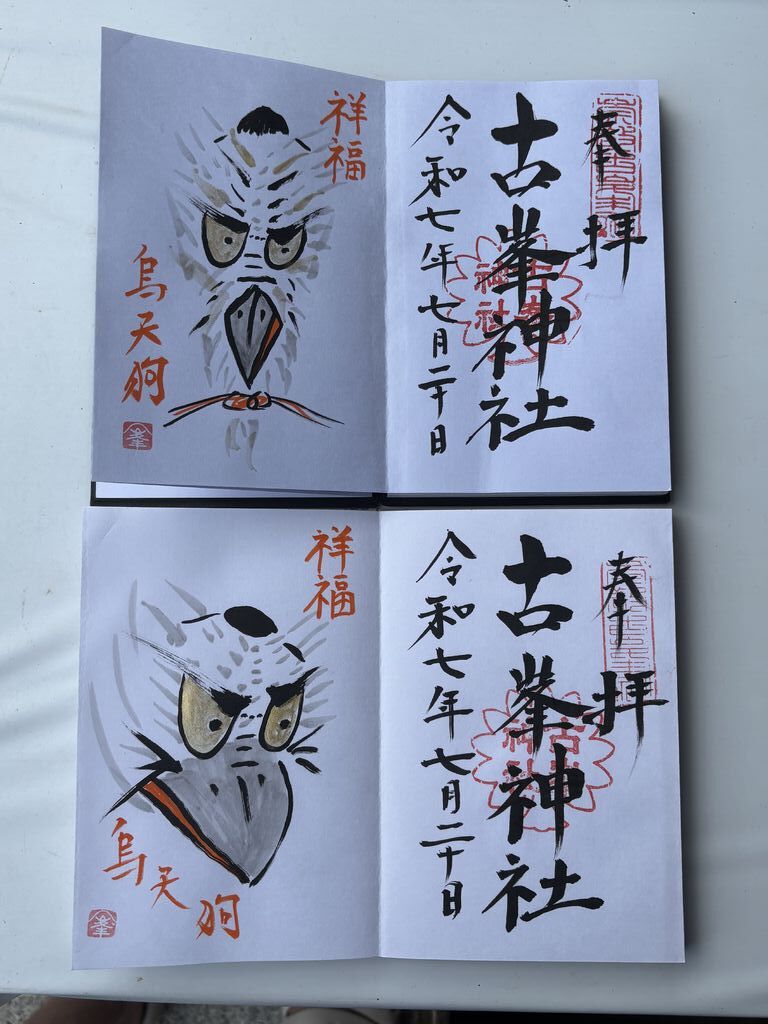 奉拝
古峯神社
令和七年七月二十日
祥福
烏天狗
奉拝
古峯神社
令和七年七月二十日
祥福
烏天狗